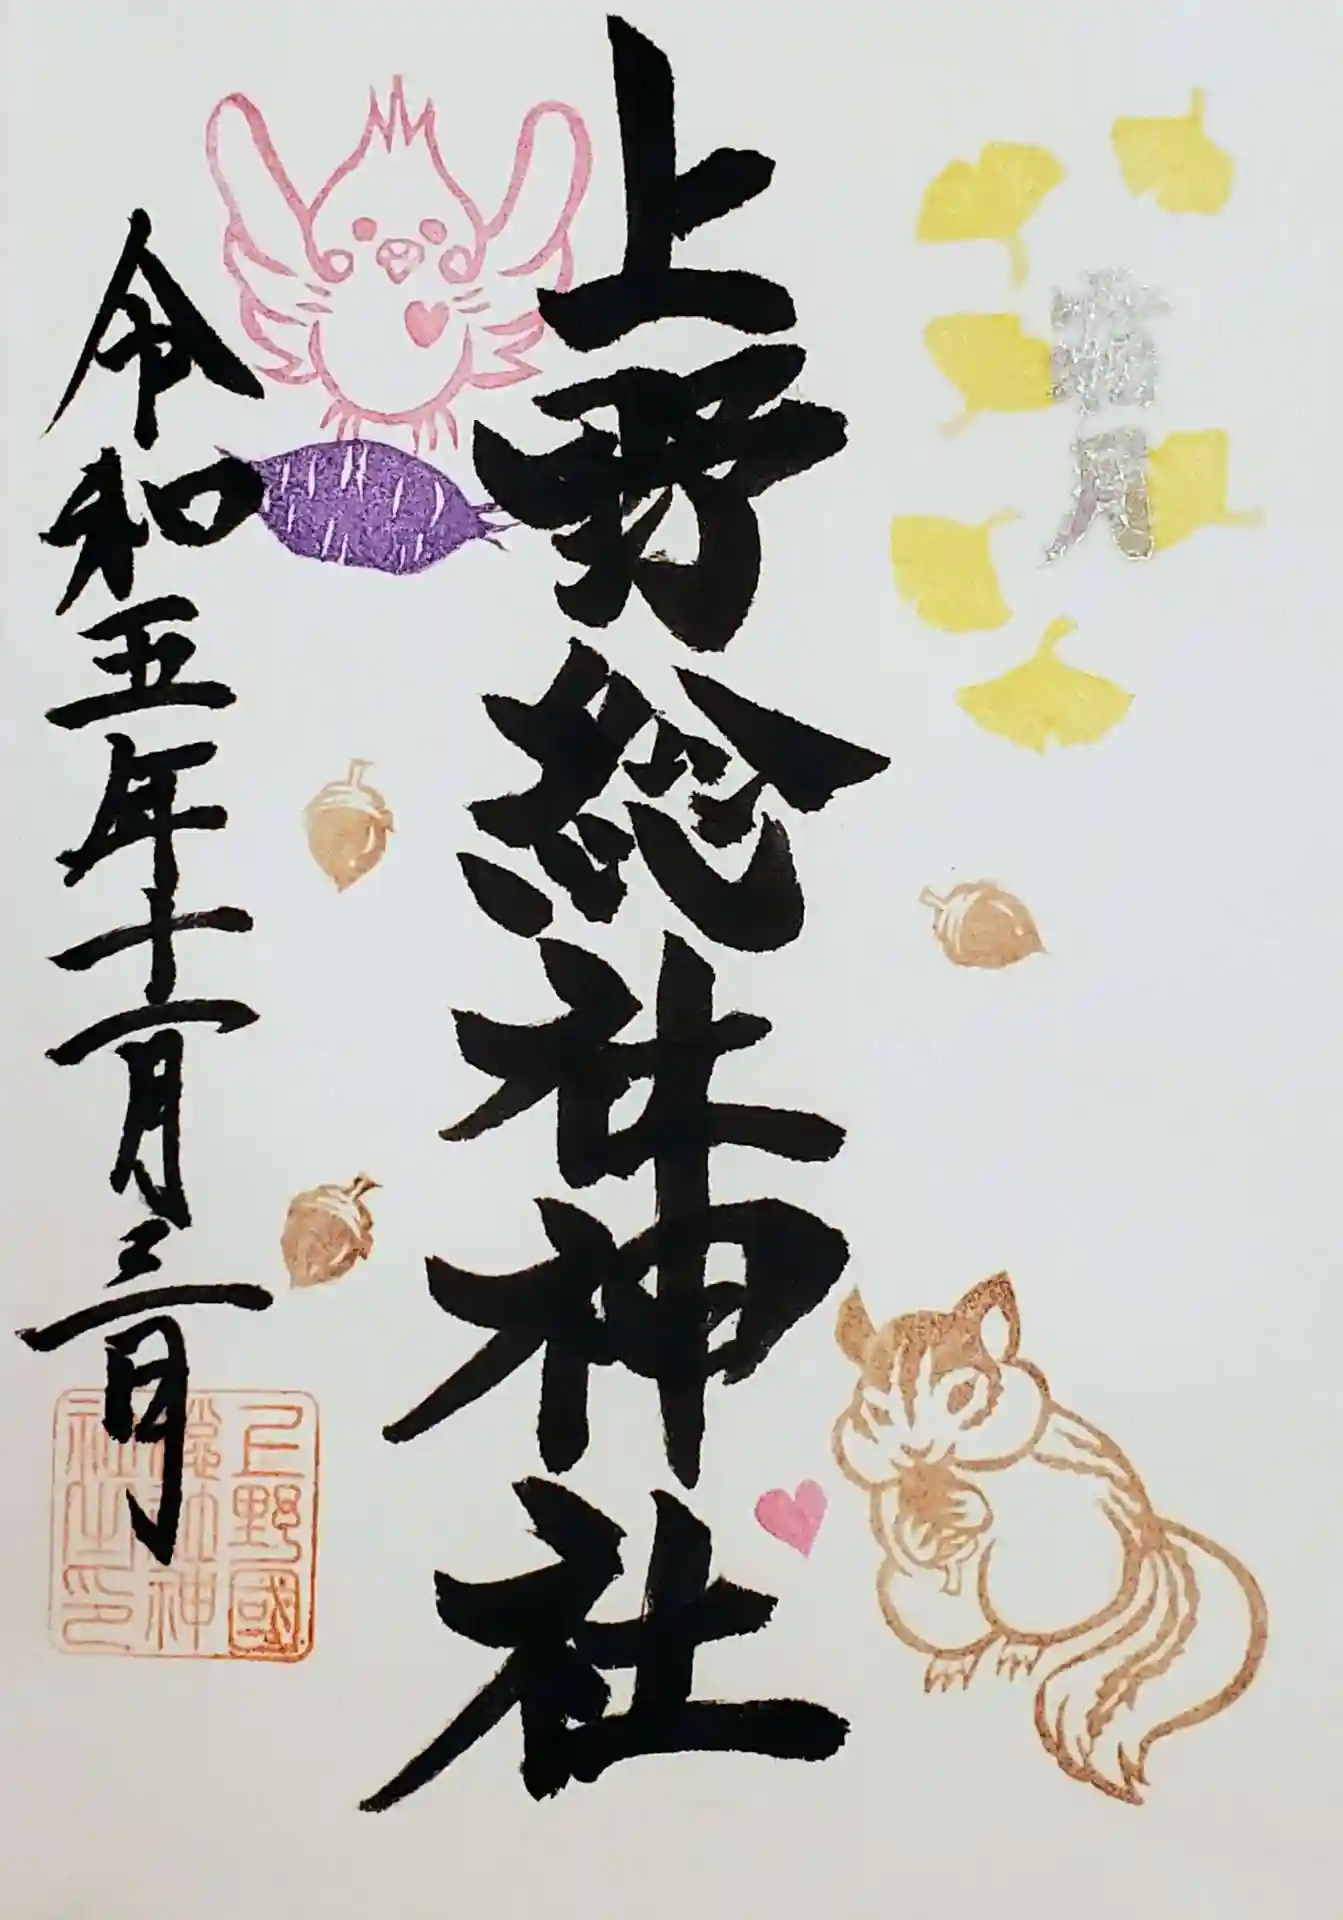 霜月
上野総社神社
令和五年十一月三日
上野國
総社神
社之印